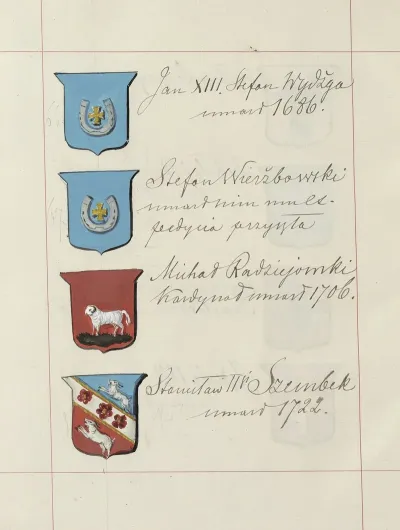 Jan XIII. Stefan Wydżga
umarł 1686.
Stefan Wierzbowski
umarł nim mu es-
pedycia przyszła
Michał Radziejowski
Kardynał umarł 1706.
Stanisław Szembek
umarł 1722.